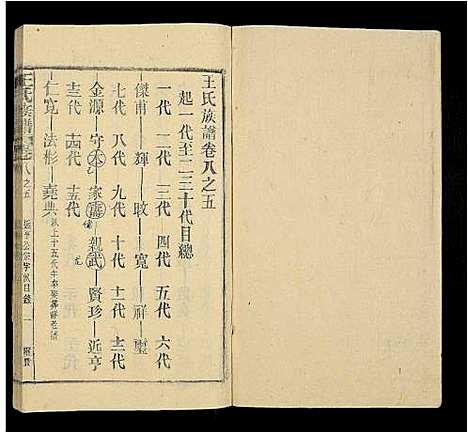 王氏族譜卷八之五
起一代至二三十代目總
一代 二代 三代 四代 五代 六代
傑甫 輝 政 寬 祥 璽
七代 八代 九代 十代 十一代 十二代
金源 守本 家 親武 賢珍 近亨
十三代 十四代 十五代
仁寬 法形 堯典
王氏族譜 卷八之五